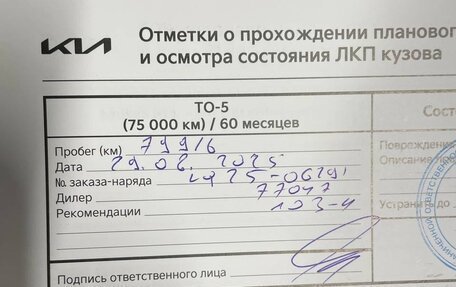 KIA
Отметки о прохождении планового
и осмотра состояния ЛКП кузова
ТО-5
(75 000 км) / 60 месяцев
Пробег (км) 79916
Дата 29.06.2025
№. заказа-наряда
Дилер 77047
Рекомендации 103-4
Подпись ответственного лица
Сост
Повреждения
Описание
Устранить до